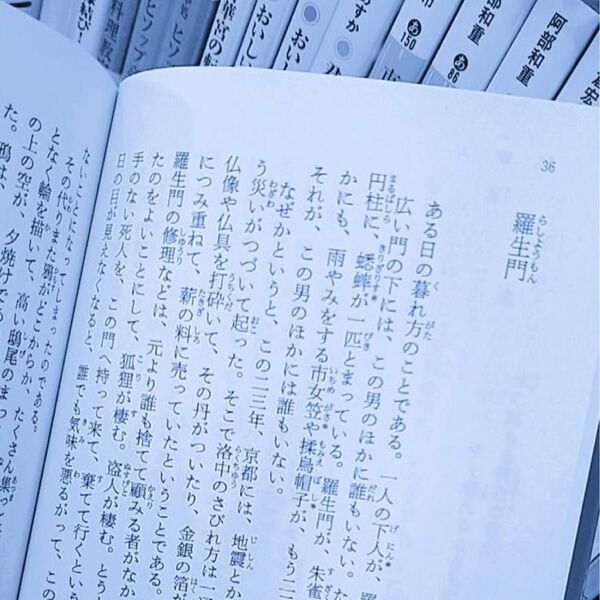 阿部和重
阿部和重
あ86
あ150
すか
おい
おいしい
36
羅生門
らしょうもん
ある日の暮れ方のことである。一人の下人が、羅
広い門の下には、この男のほかに誰もいない。た
円柱に、蟋蟀が一匹とまっている。羅生門が、朱雀
かにも、雨やみをする市女笠や揉烏帽子が、もう二
それが、この男のほかには誰もいない。
なぜかというと、この二三年、京都には、地震とか
う災いがつづいて起った。そこで洛中のさびれ方は一
仏像や仏具を打砕いて、その丹がついたり、金銀の箔が
につみ重ねて、薪の料に売っていたということである。
羅生門の修理などは、元より誰も捨てて顧みる者がなか
たのをよいことにして、狐狸が棲む。盗人が棲む。とう
手のない死人を、この門へ持って来て、棄てて行くという
日の目が見えなくなると、誰でも気味を悪るがって、この
ないことになってしまったのである。
その代りまた鴉がどこからか、たくさん集っ
となく輪を描いて、高い鴟尾のまっ
の上の空が、夕焼けで
た。鴉は、